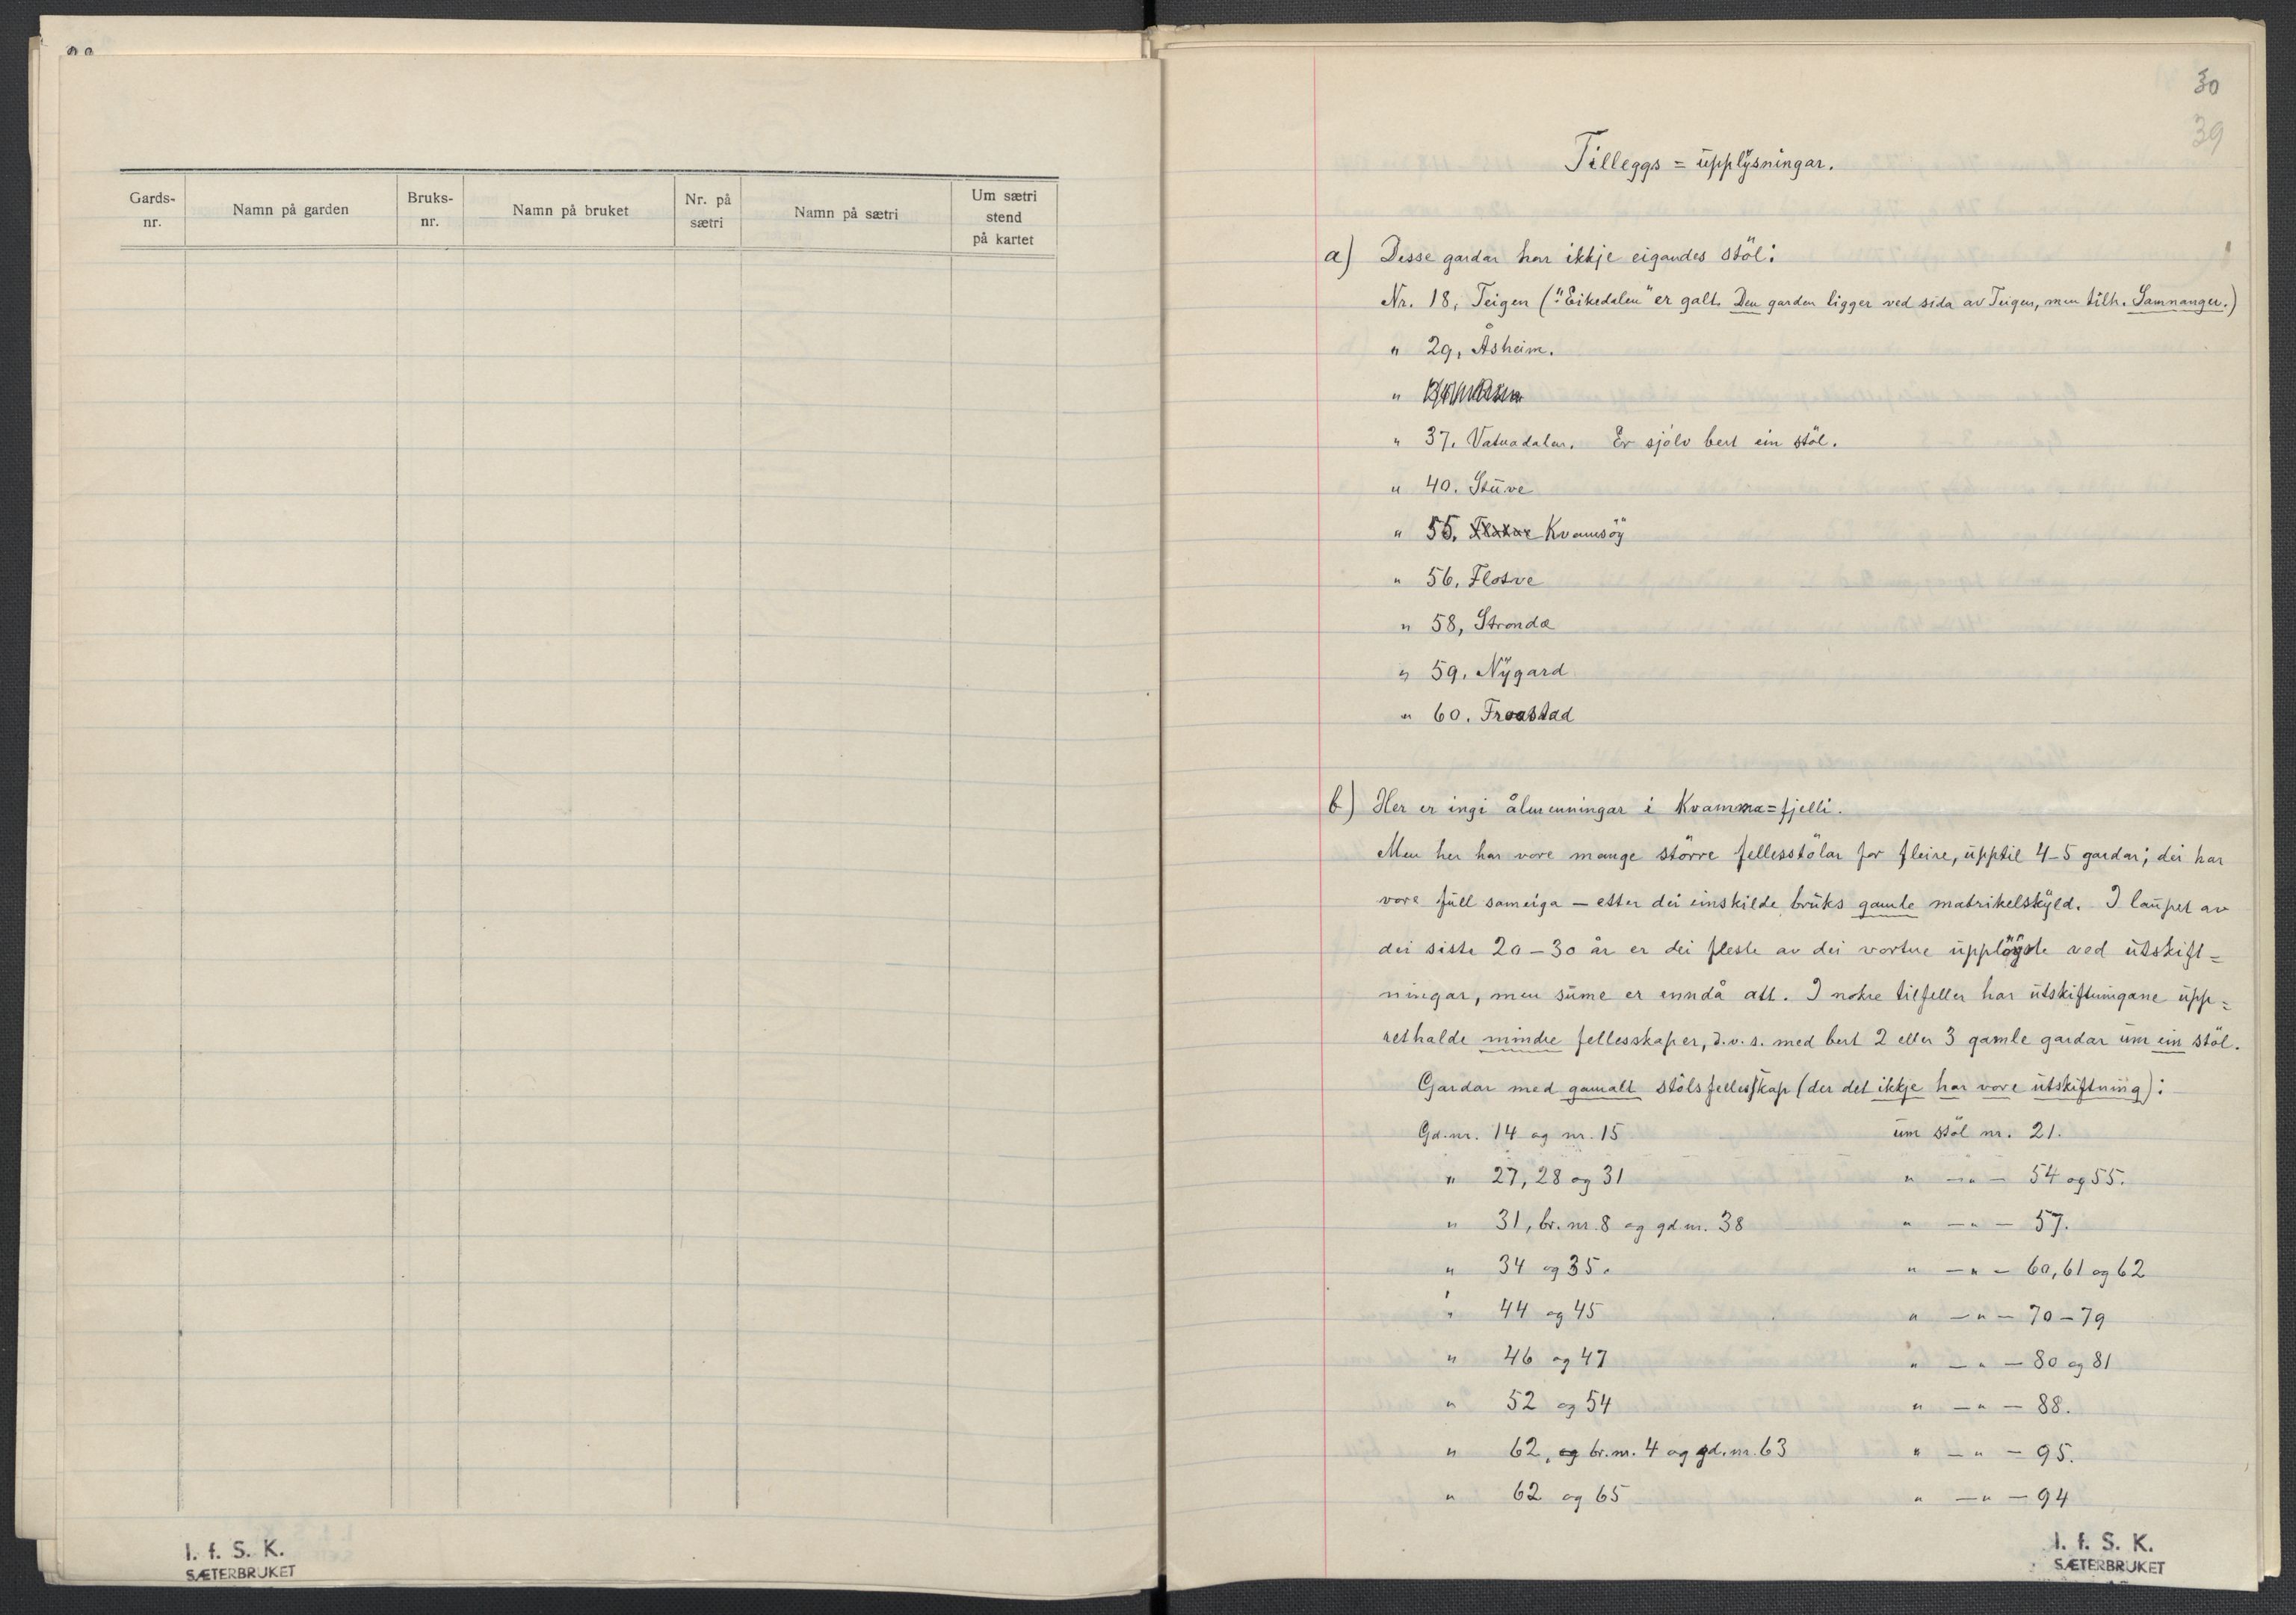 Gards-nr. Namn på garden Bruks-nr. Namn på bruket Nr. på sætri Namn på sætri Um sætri stend på kartet
I. f. S. K.
SÆTERBRUKET
30
39
Tilleggs=upplysningar.
a) Desse gardar har ikkje eigandes stöl:
Nr. 18, Teigen ("Eikedalen" er galt. Den garden ligger ved sida av Teigen, men tilh. Samnanger.)
" 29, Åsheim.
"
" 37. Vatnadalen. Er sjölv bert ein stöl.
" 40. Stuve
" 55. Kvamsöy
" 56, Flotve
" 58, Stronda
" 59, Nygard
" 60. Froastad
b) Her er ingi ålmenningar i Kvamma=fjelli.
Men her har vore mange större fellesstölar for fleire, upptil 4-5 gardar; dei har
vore full sameiga — etter dei einskilde bruks gamle matrikelskyld. I laupet av
dei siste 20-30 år er dei fleste av dei vortne upplöyste ved utskift=
ningar, men sume er enndå att. I nokre tilfeller har utskiftningane upp=
rethalde mindre fellesskaper, d.v.s. med bert 2 eller 3 gamle gardar um ein stöl.
Gardar med gamalt stölsfellesskap (der det ikkje har vore utskiftning):
Gd.nr. 14 og nr. 15 um stöl nr. 21.
" 27, 28 og 31 " —"— 54 og 55.
" 31, br.nr. 8 og gd.nr. 38 " —"— 57.
" 34 og 35. " —"— 60, 61 og 62
" 44 og 45 " —"— 70-79
" 46 og 47 " —"— 80 og 81
" 52 og 54 " —"— 88.
" 62, og br.nr. 4 og gd.nr. 63 " —"— 95.
" 62 og 65 " —"— 94
I. f. S. K.
SÆTERBRUKET